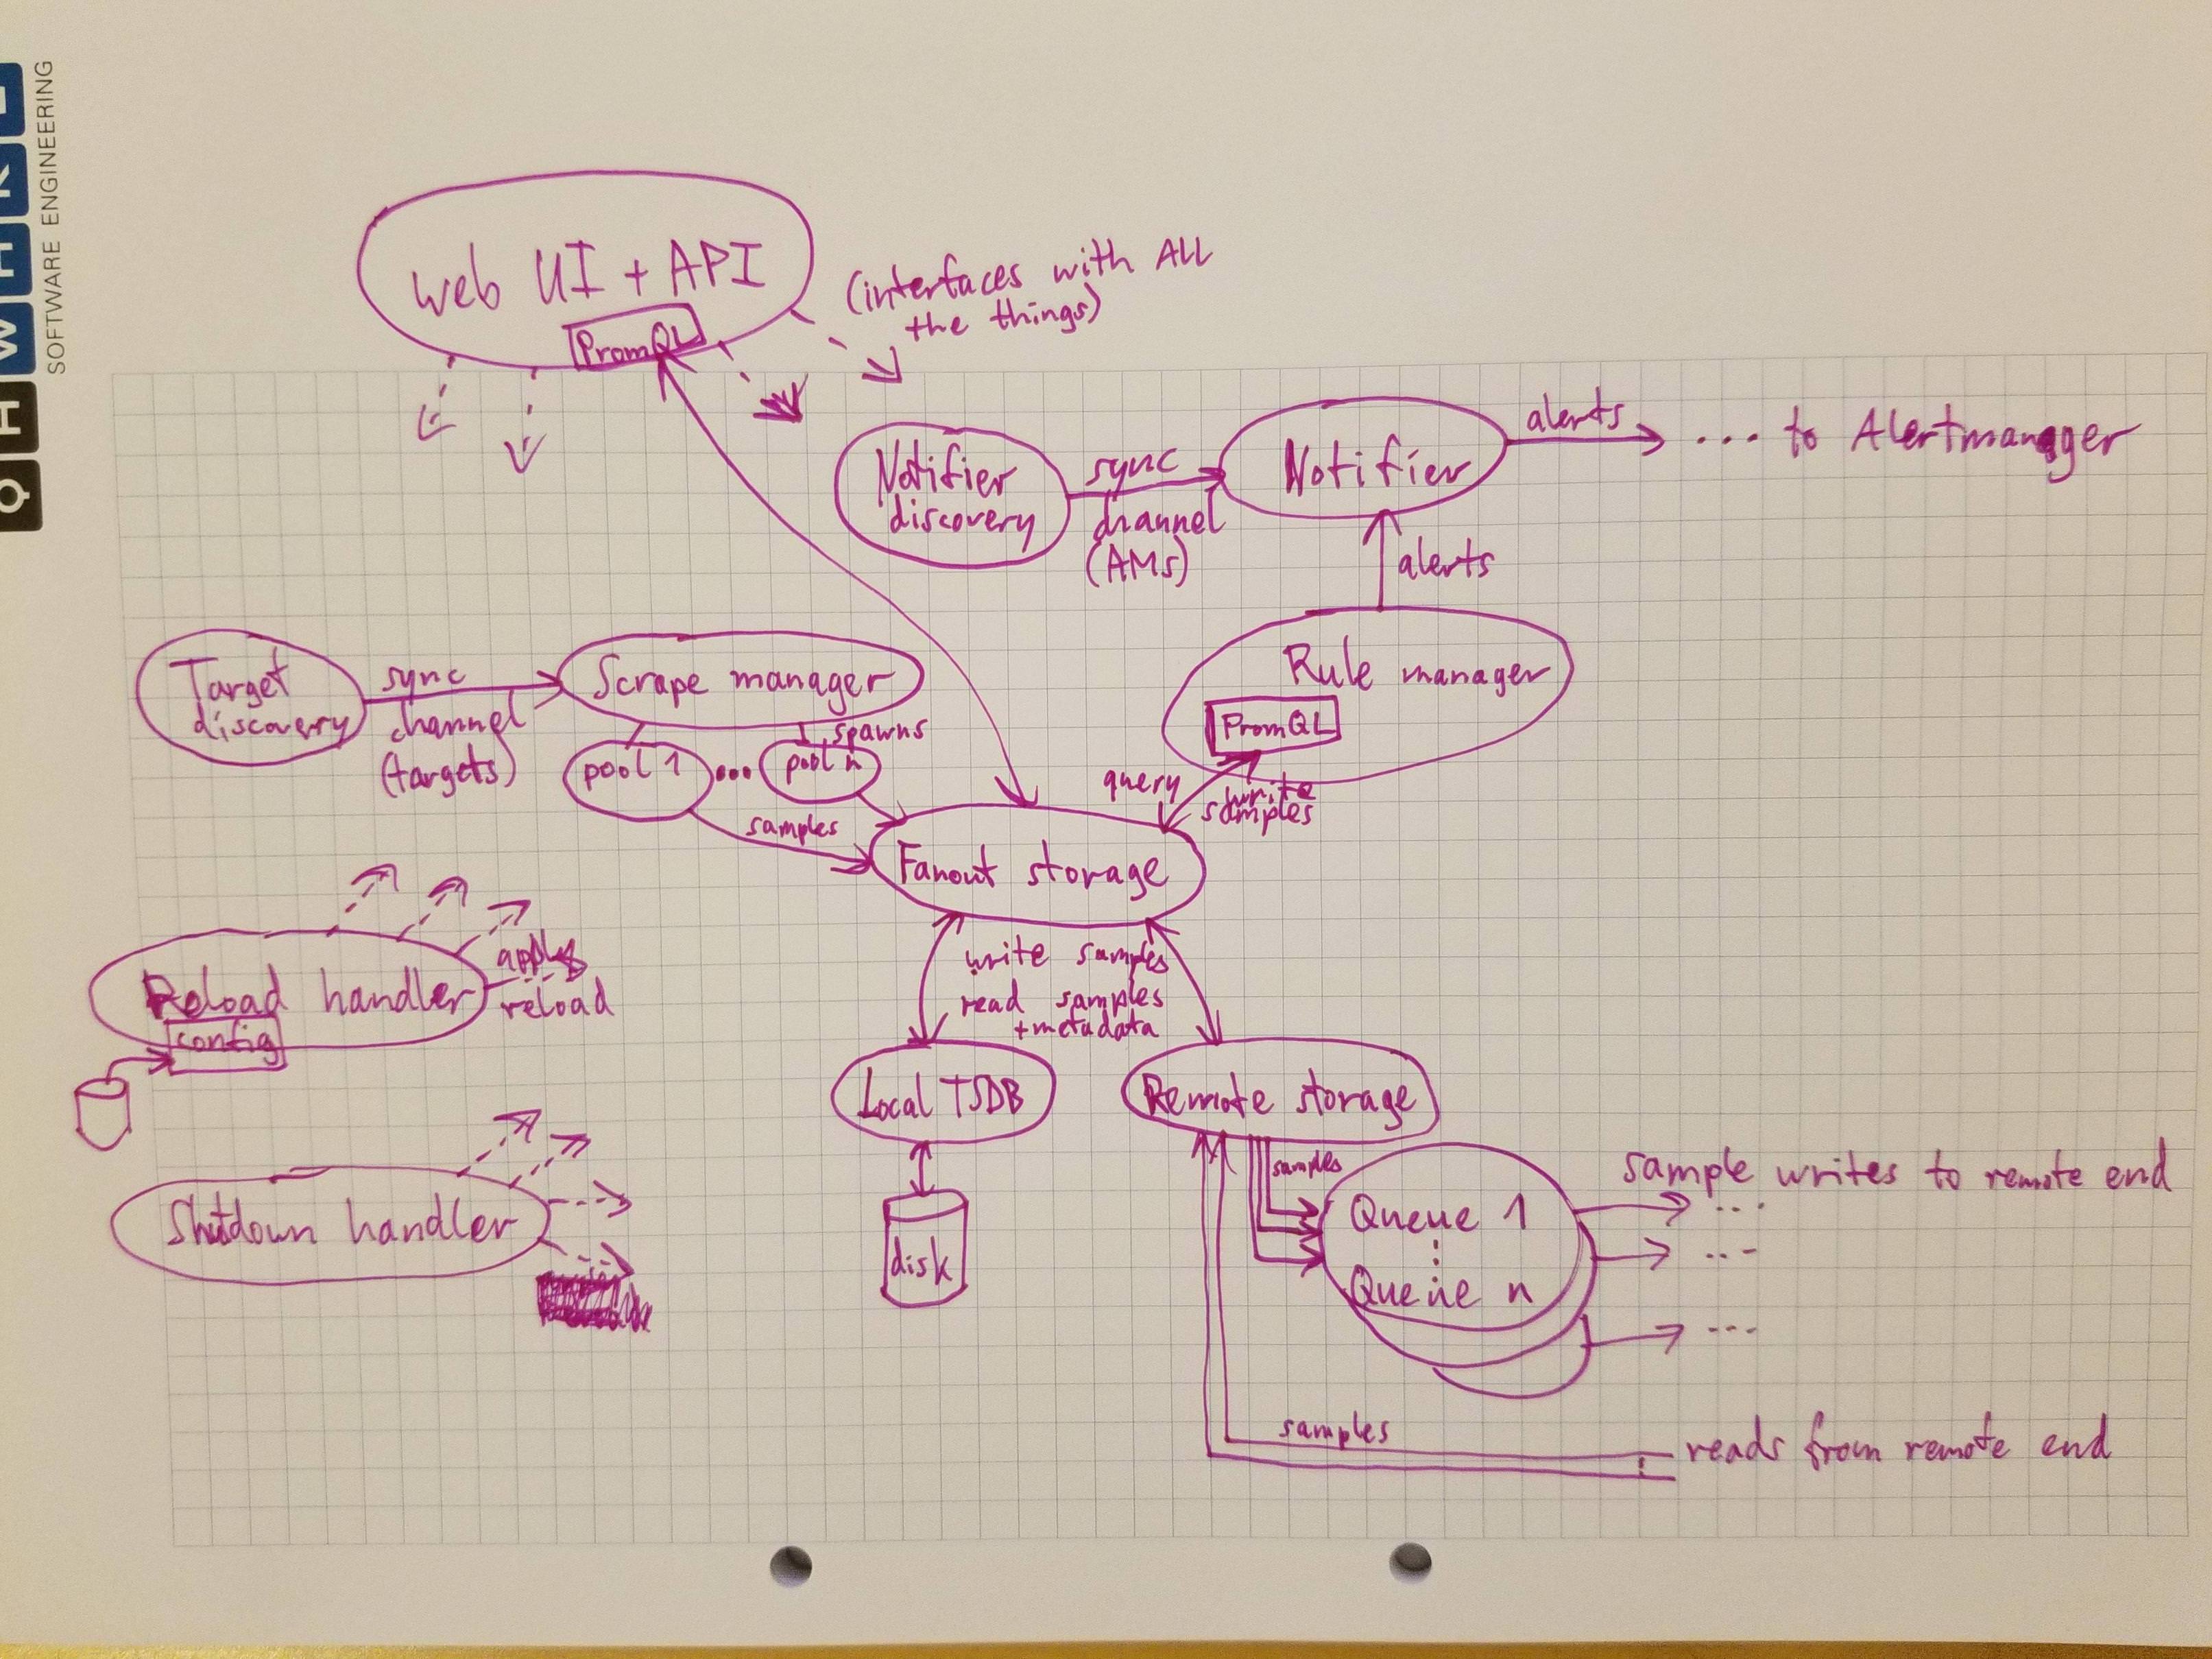 SOFTWARE ENGINEERING
web UI + API
PromQL
(interfaces with ALL
the things)
Notifier
discovery
sync
channel
(AMs)
Notifier
alerts
... to Alertmanager
alerts
Target
discovery
sync
channel
(targets)
Scrape manager
spawns
pool 1
...
pool n
samples
Rule manager
PromQL
query
write
samples
Fanout storage
write samples
read samples
+metadata
Reload handler
config
apply
reload
Shutdown handler
Local TSDB
disk
Remote storage
samples
Queue 1
Queue n
sample writes to remote end
...
...
...
samples
reads from remote end